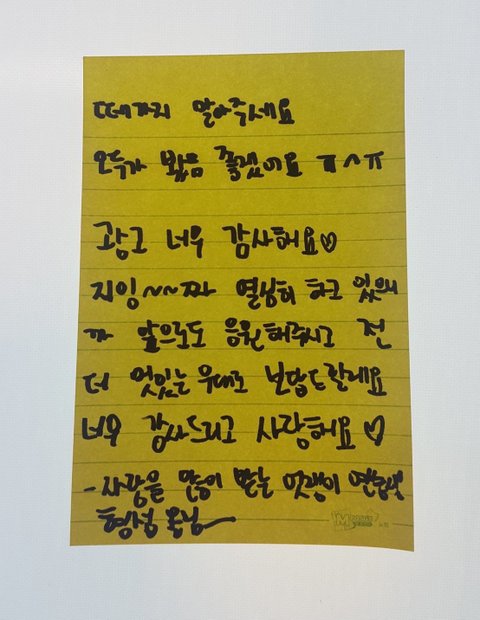 떼가지 말아주세요
모두가 봤음 좋겠어요 ㅠㅅㅠ
광고 너무 감사해요♡
지잉~~짜 열심히 하고 있으니
까 앞으로도 응원해주시고 전
더 멋있는 무대로 보답드릴게요
너무 감사드리고 사랑해요♡
-사랑을 많이 받는 멋쟁이
형성